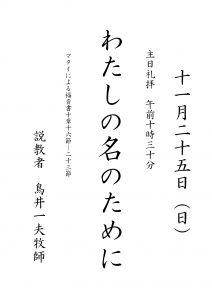 十一月二十五日（日）
主日礼拝　午前十時三十分
わたしの名のために
マタイによる福音書十章十六節―二十三節
説教者　鳥井一夫牧師